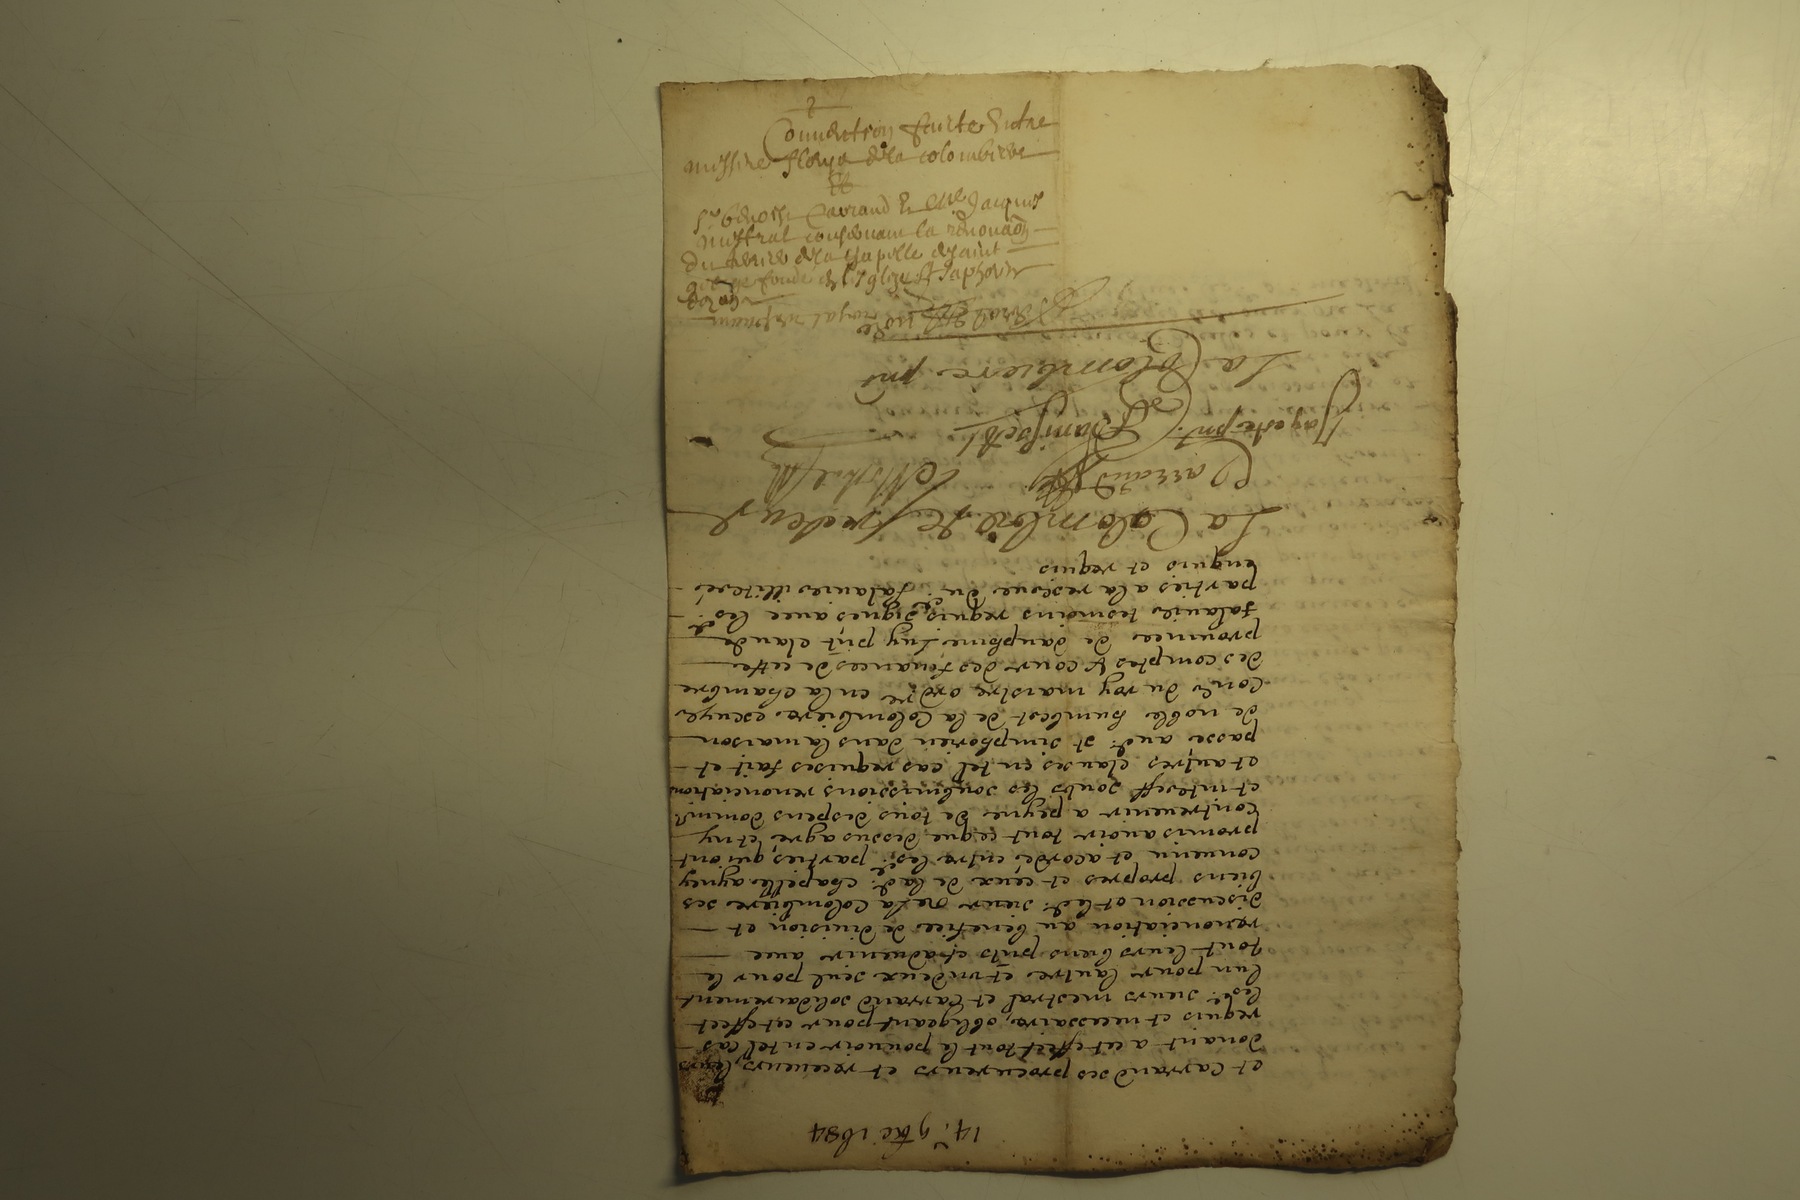 Convention faicte Entre
messire floris de la colombiere
Et
Sr benoist Carrand & Me Jacques
mistral concernant la renovaon
du terrier de la chapelle de saint
george fondé en l'eglise St saphorin
dozon
14e 9bre 1684
et Carrand ses procureurs et receveurs, leurs
donant a cet effet tout le pouvoir en tel cas
requis et necessaire, obligeant pour cet effect
lesd: sieurs mestral et Carrand solidairement
lun pour lautre et un deux seul pour le
tout leurs biens pnts et advenir avec
renonciation au benefice de division et
discussion et led: sieur de la Colombiere ses
biens propres et ceux de lad: chapelle ayncy
convenu et acordé entre lesd: parties qui ont
promis avoir tout ce que dessus agreé et ny
contrevenir a peyne de tous despens domm.
et interestz soubz les soubmissions renonciations
et autres clauses en tel cas requises fait et
passe aud: st simphorien dans la maison
de noble humbert de la Colombiere escuyer
Coner du roy maistre ordre en la chambre
des comptes & cour des finances de cette
province de dauphine. luy pnt claude
falavier tesmoins requis signes avec les d:
parties a la reserve du d: falavier illiteré
enquis et requis
La Colombiere
Carrand
Mestral
pnt.
La Colombiere pnt
royal